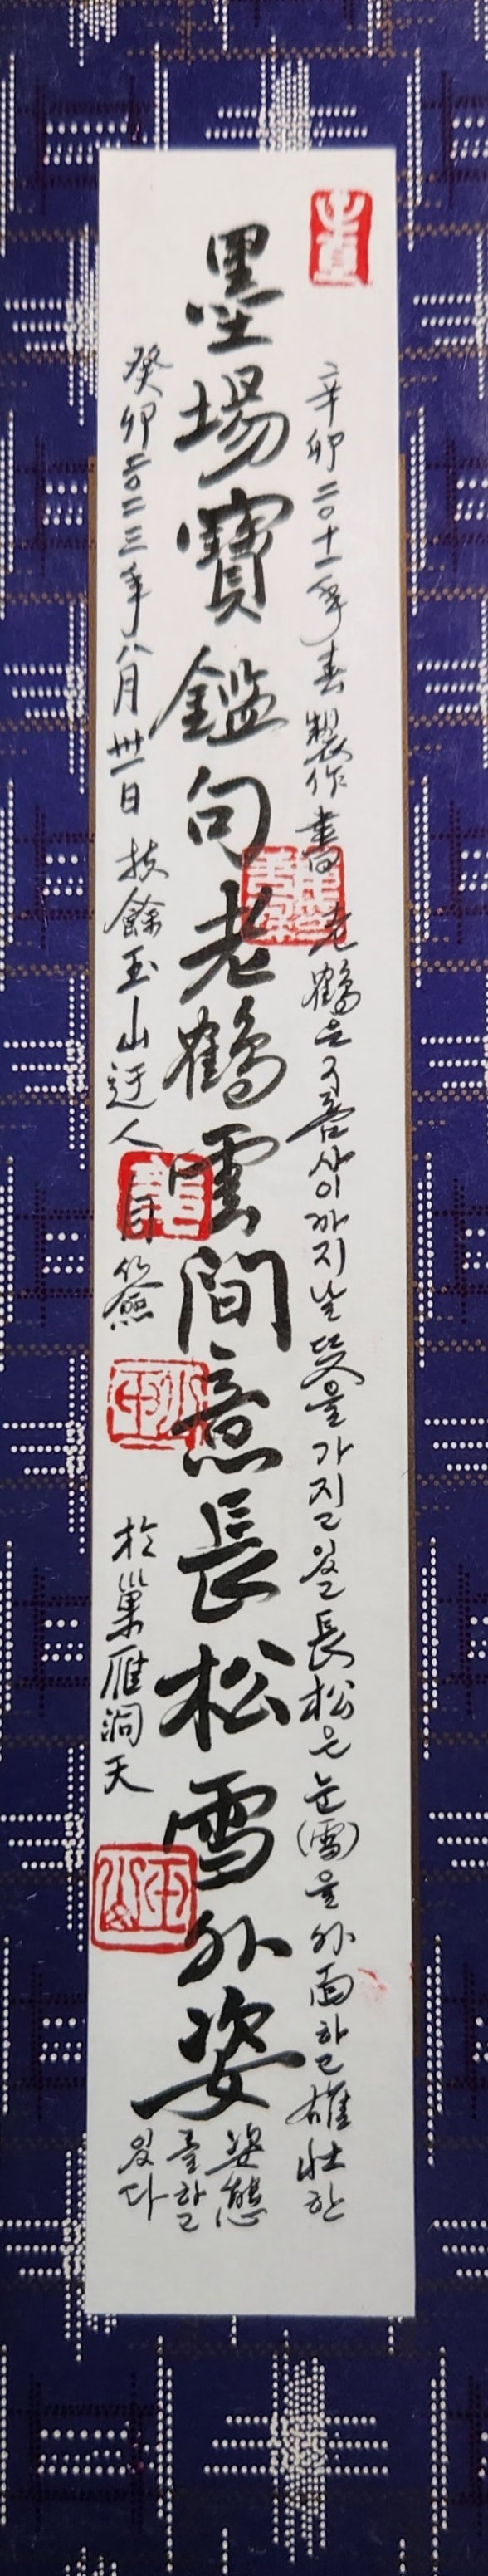 辛卯二〇十一年春製作書 老鶴은 구름 사이까지 날 뜻을 가질 있는 長松은 눈(雪)을 外面할 雄壯한
姿態
를 할
있다
墨場寶鑑句老鶴雲間意長松雪外姿
癸卯二〇二三年八月卅一日 扶餘玉山迂人 自簽 於巢雁洞天